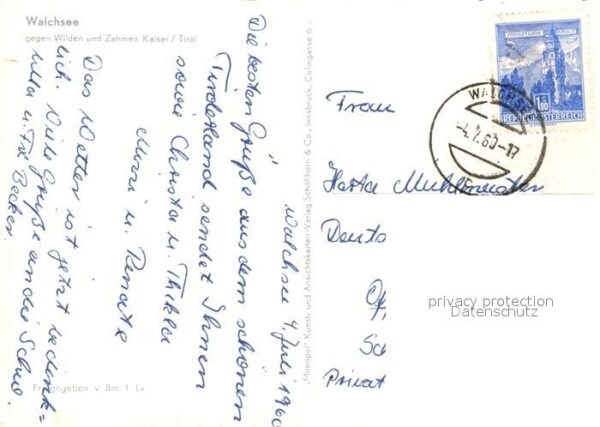 Walchsee
gegen Wilden und Zahmen Kaiser / Tirol
Walchsee 4. Juli 1960
Die besten Grüße aus dem schönen
Tirolerland sendet Ihnen
sowie Christa u. Thekla
u. Renate
Das Wetter ist jetzt bedenk-
lich. Viele Grüße an die Schw.
u. Frl. Becker
Freigegeben v. Bm. f. Lv
"Monopol" Kunst- und Ansichtskarten-Verlag Schöllhorn & Co., Innsbruck, Colingasse 6
MÜNZTURM HALL i. T.
1.80
REPUBLIK ÖSTERREICH
WALCHSEE
-4.7.60-17
Frau
Herta
Deuts
Sc
Privat
privacy protection
Datenschutz